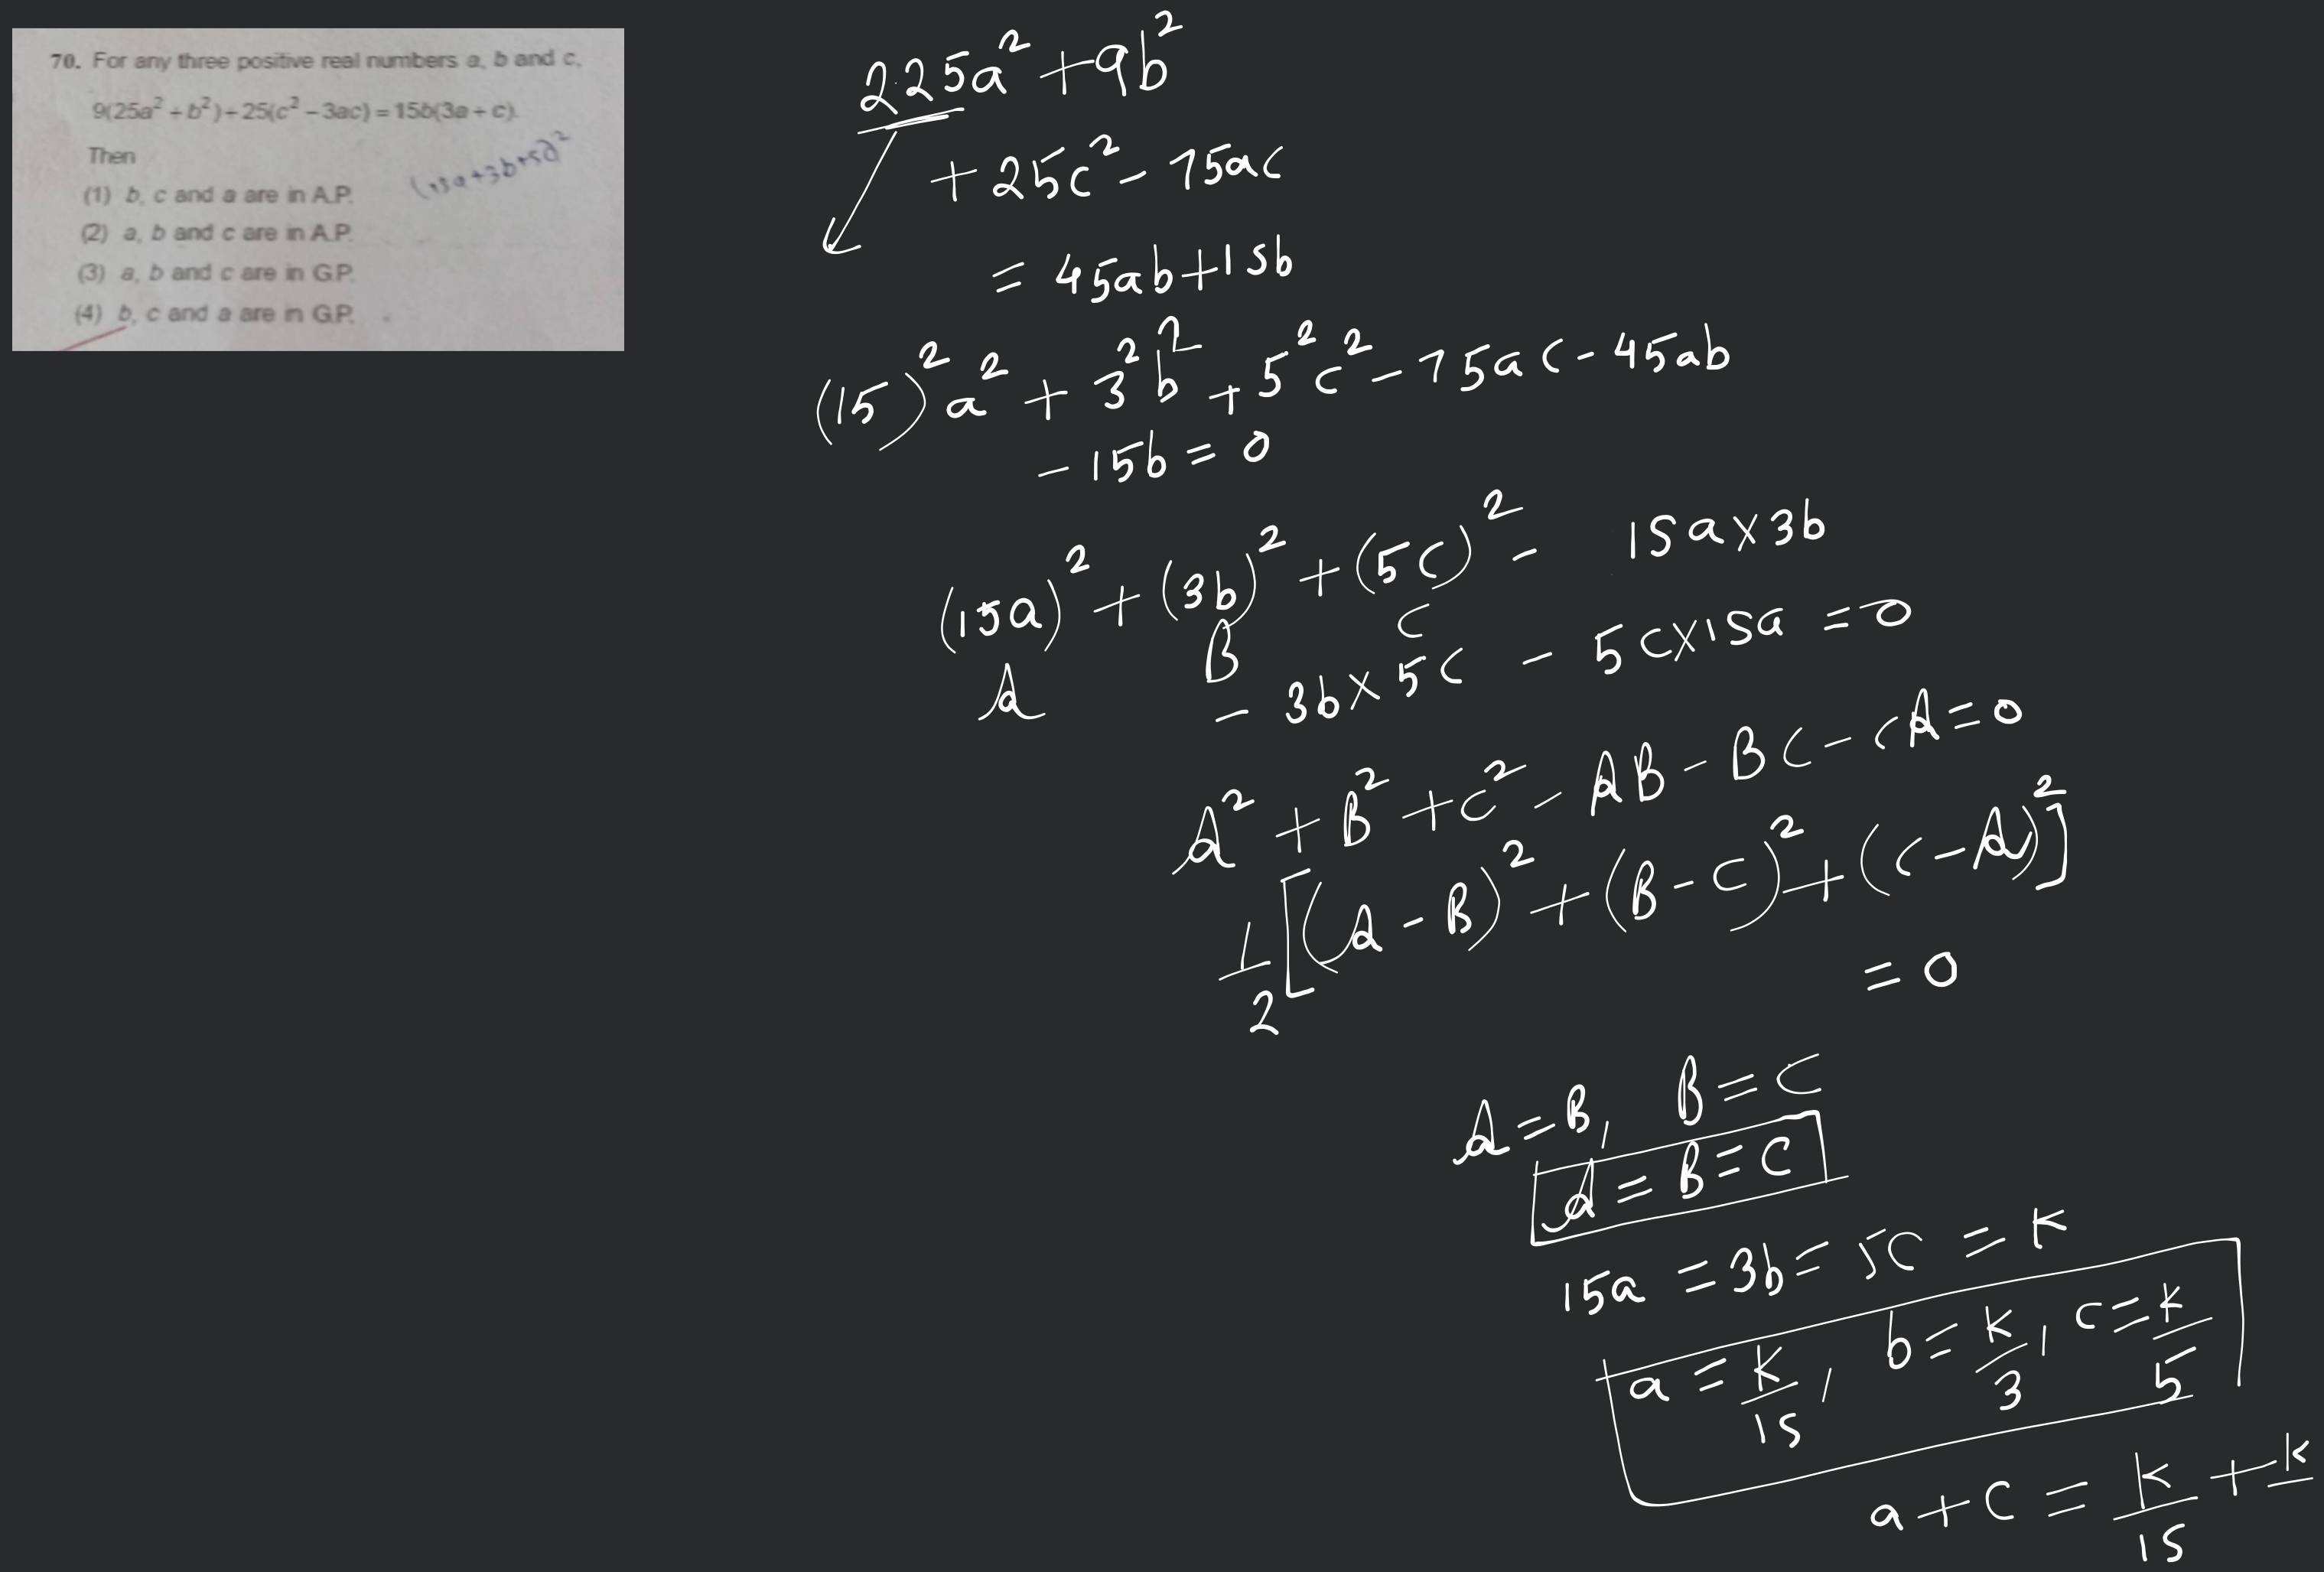 70. For any three positive real numbers a, b and c,
9(25a² + b²) + 25(c² – 3ac) = 15b(3a + c).
Then
(15a+3b+5c)²
(1) b, c and a are in A.P.
(2) a, b and c are in A.P.
(3) a, b and c are in G.P.
(4) b, c and a are in G.P.
225a² + 9b²
+ 25c² - 75ac
= 45ab + 15b
(15)² a² + 3² b² + 5² c² - 75ac - 45ab
- 15b = 0
(15a)² + (3b)² + (5c)² - 15a×3b
A B C
- 3b×5c - 5c×15a = 0
A² + B² + C² - AB - BC - CA = 0
1/2 [(A-B)² + (B-C)² + (C-A)²]
= 0
A = B, B = C
A = B = C
15a = 3b = 5c = K
a = K/15, b = K/3, c = K/5
a + c = K/15 + K